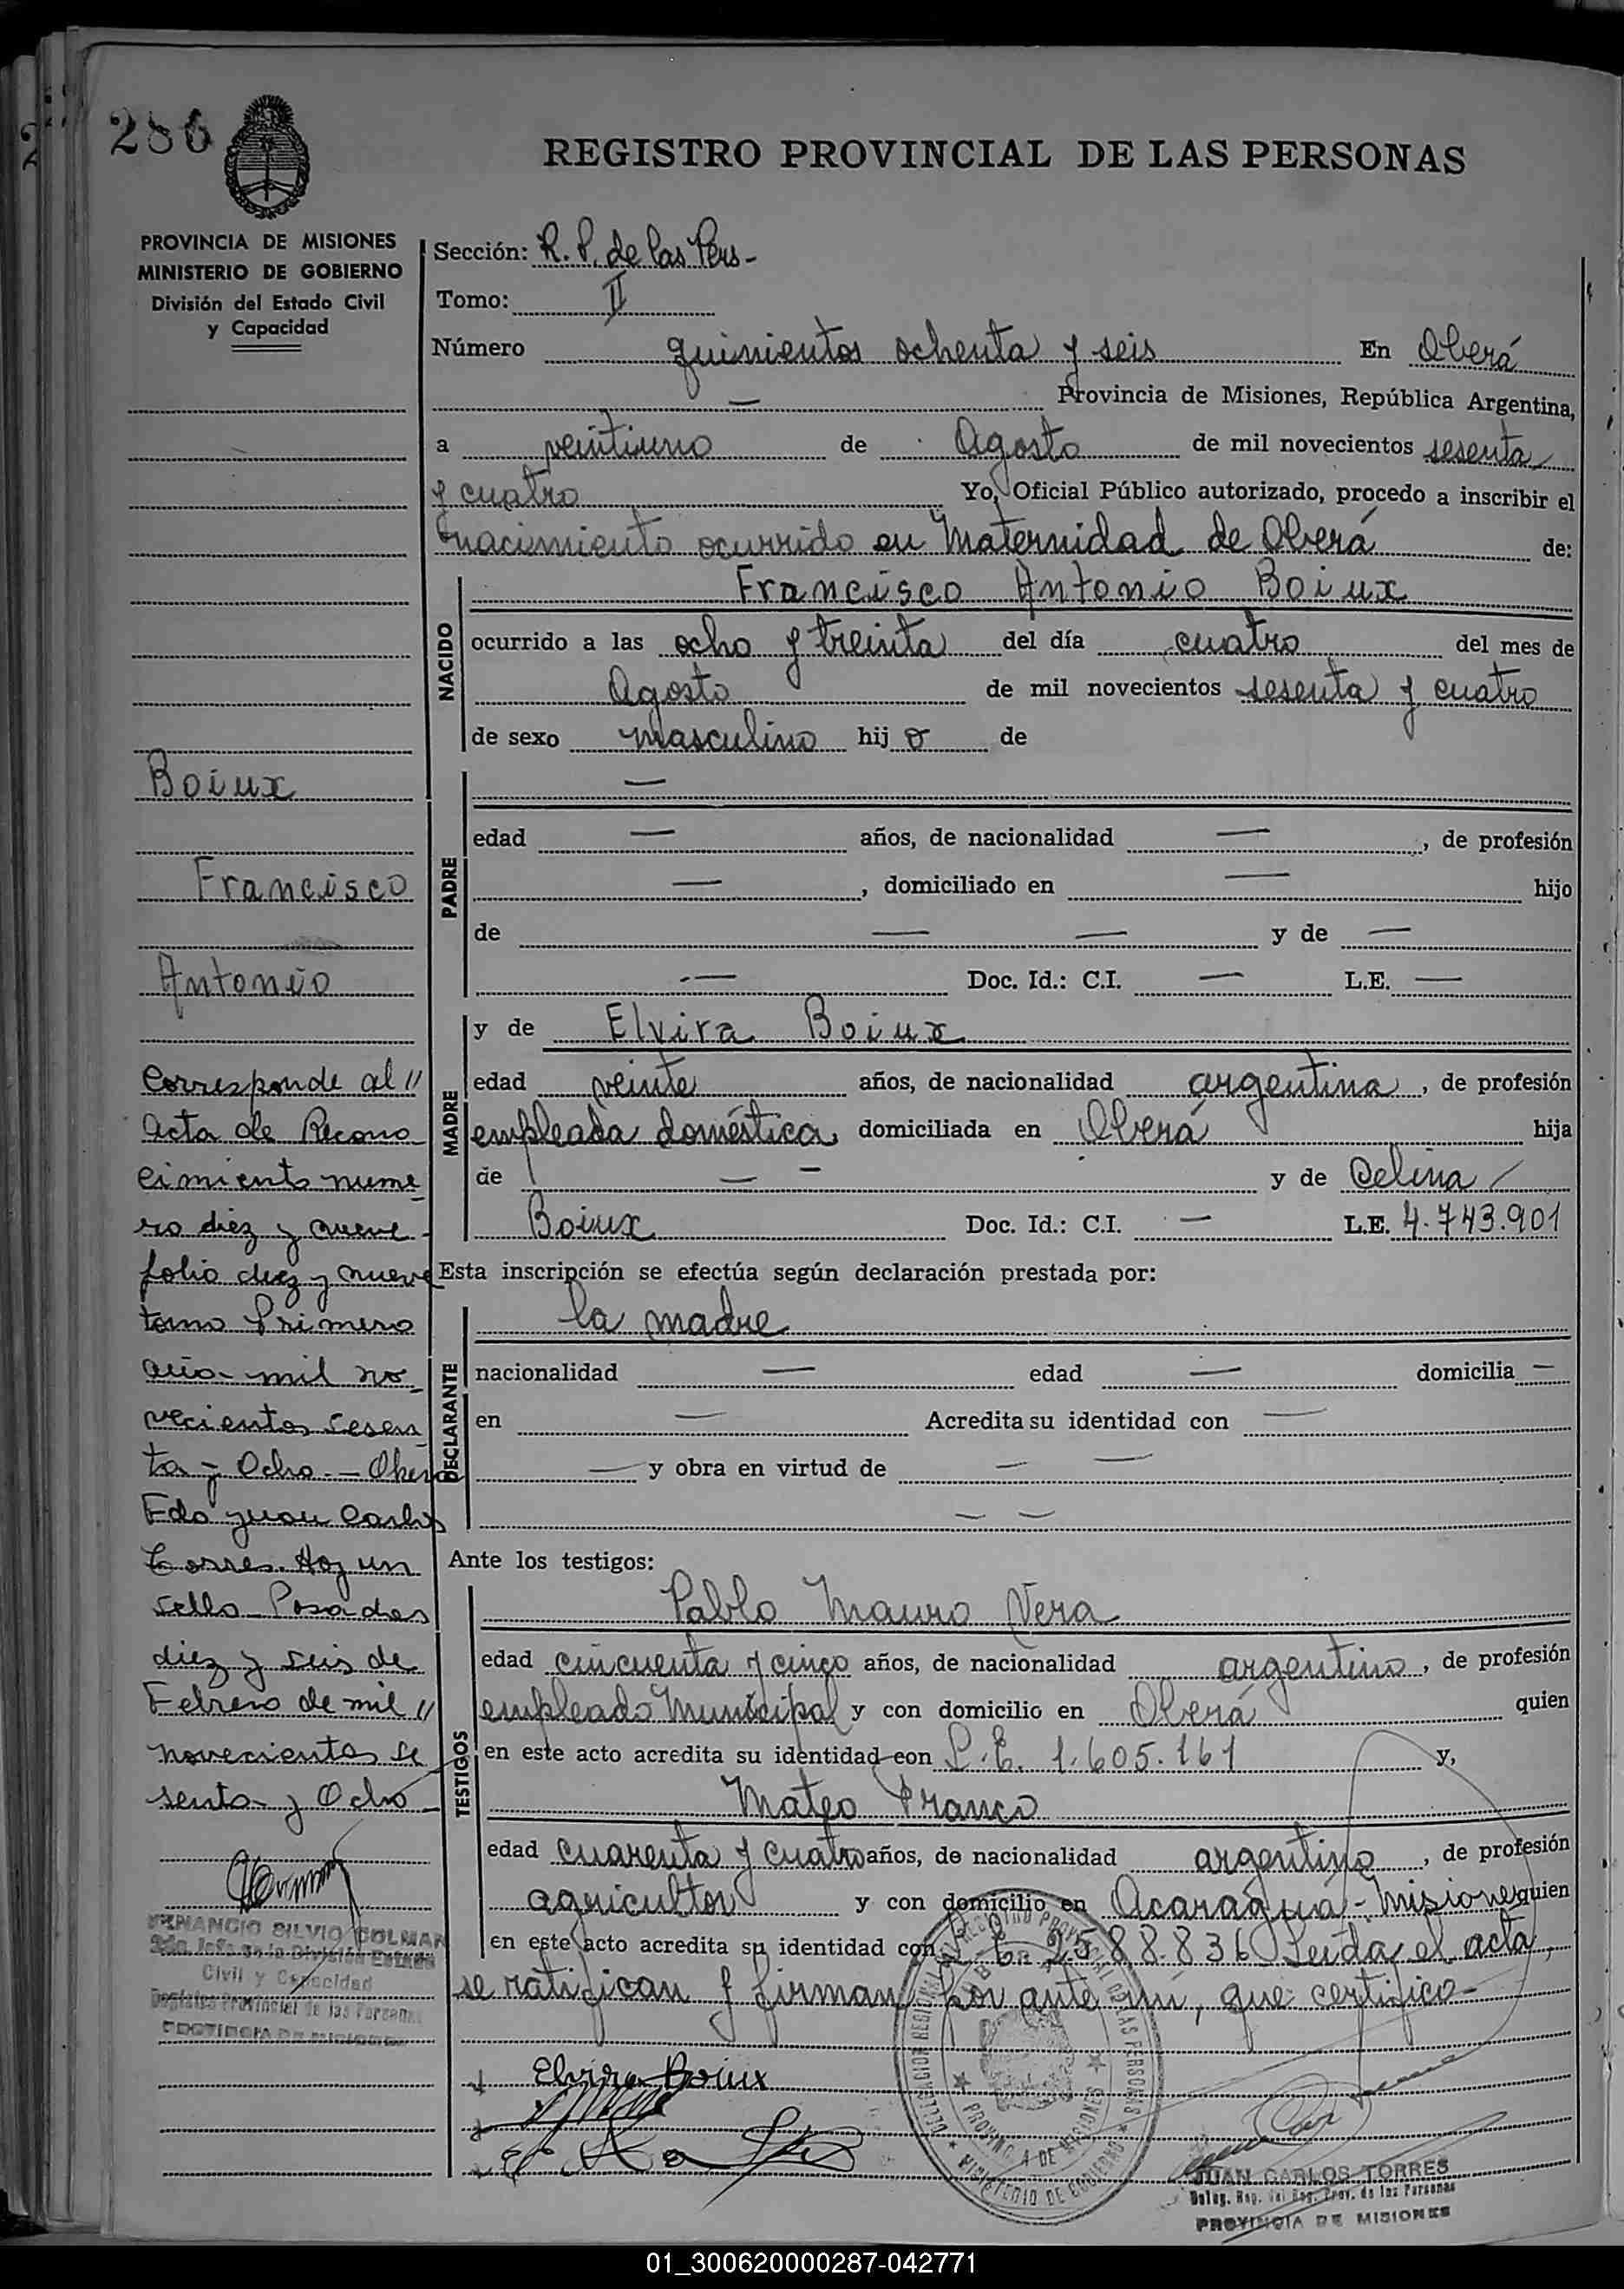 286
REGISTRO PROVINCIAL DE LAS PERSONAS
PROVINCIA DE MISIONES
MINISTERIO DE GOBIERNO
División del Estado Civil
y Capacidad
Sección: R. P. de las Pers-
Tomo: II
Número quinientos ochenta y seis En Oberá
— Provincia de Misiones, República Argentina,
a veintiuno de Agosto de mil novecientos sesenta
y cuatro Yo, Oficial Público autorizado, procedo a inscribir el
nacimiento ocurrido en Maternidad de Oberá de:
NACIDO
Francisco Antonio Boiux
ocurrido a las ocho y treinta del día cuatro del mes de
Agosto de mil novecientos sesenta y cuatro
de sexo masculino hijo de
PADRE
—
edad — años, de nacionalidad —, de profesión
—, domiciliado en — hijo
de — — y de —
— Doc. Id.: C.I. — L.E. —
MADRE
y de Elvira Boiux
edad veinte años, de nacionalidad argentina, de profesión
empleada doméstica, domiciliada en Oberá hija
de — — y de Celina
Boiux Doc. Id.: C.I. — L.E. 4.743.901
Esta inscripción se efectúa según declaración prestada por:
DECLARANTE
la madre
nacionalidad — edad — domicilia —
en — Acredita su identidad con —
— y obra en virtud de — —
— —
Ante los testigos:
TESTIGOS
Pablo Mauro Vera
edad cincuenta y cinco años, de nacionalidad argentino, de profesión
empleado Municipal y con domicilio en Oberá quien
en este acto acredita su identidad con L.E. 1.605.161 y,
Mateo Franco
edad cuarenta y cuatro años, de nacionalidad argentino, de profesión
agricultor y con domicilio en Acaraguá-Misiones quien
en este acto acredita su identidad con L.E. 2588.836 Leida el acta,
se ratifican y firman por ante mí, que certifico-
Elvira Boiux
JUAN CARLOS TORRES
Deleg. Reg. del Reg. Prov. de las Personas
PROVINCIA DE MISIONES
DELEGACION REGIONAL DEL REGISTRO PROVINCIAL DE LAS PERSONAS
MINISTERIO DE GOBIERNO
PROVINCIA DE MISIONES
Boiux
Francisco
Antonio
Corresponde al //
Acta de Recono
cimiento nume-
ro diez y nueve-
folio diez y nueve
tomo Primero
año- mil no-
vecientos sesen
ta y Ocho.- Oberá
Fdo Juan Carlos
Torres. Hay un
sello- Posadas
diez y seis de
Febrero de mil //
novecientos se
senta y Ocho-
VENANCIO SILVIO COLMAN
2do. Jefe de la División Estado
Civil y Capacidad
Registro Provincial de las Personas
PROVINCIA DE MISIONES
01_300620000287-042771